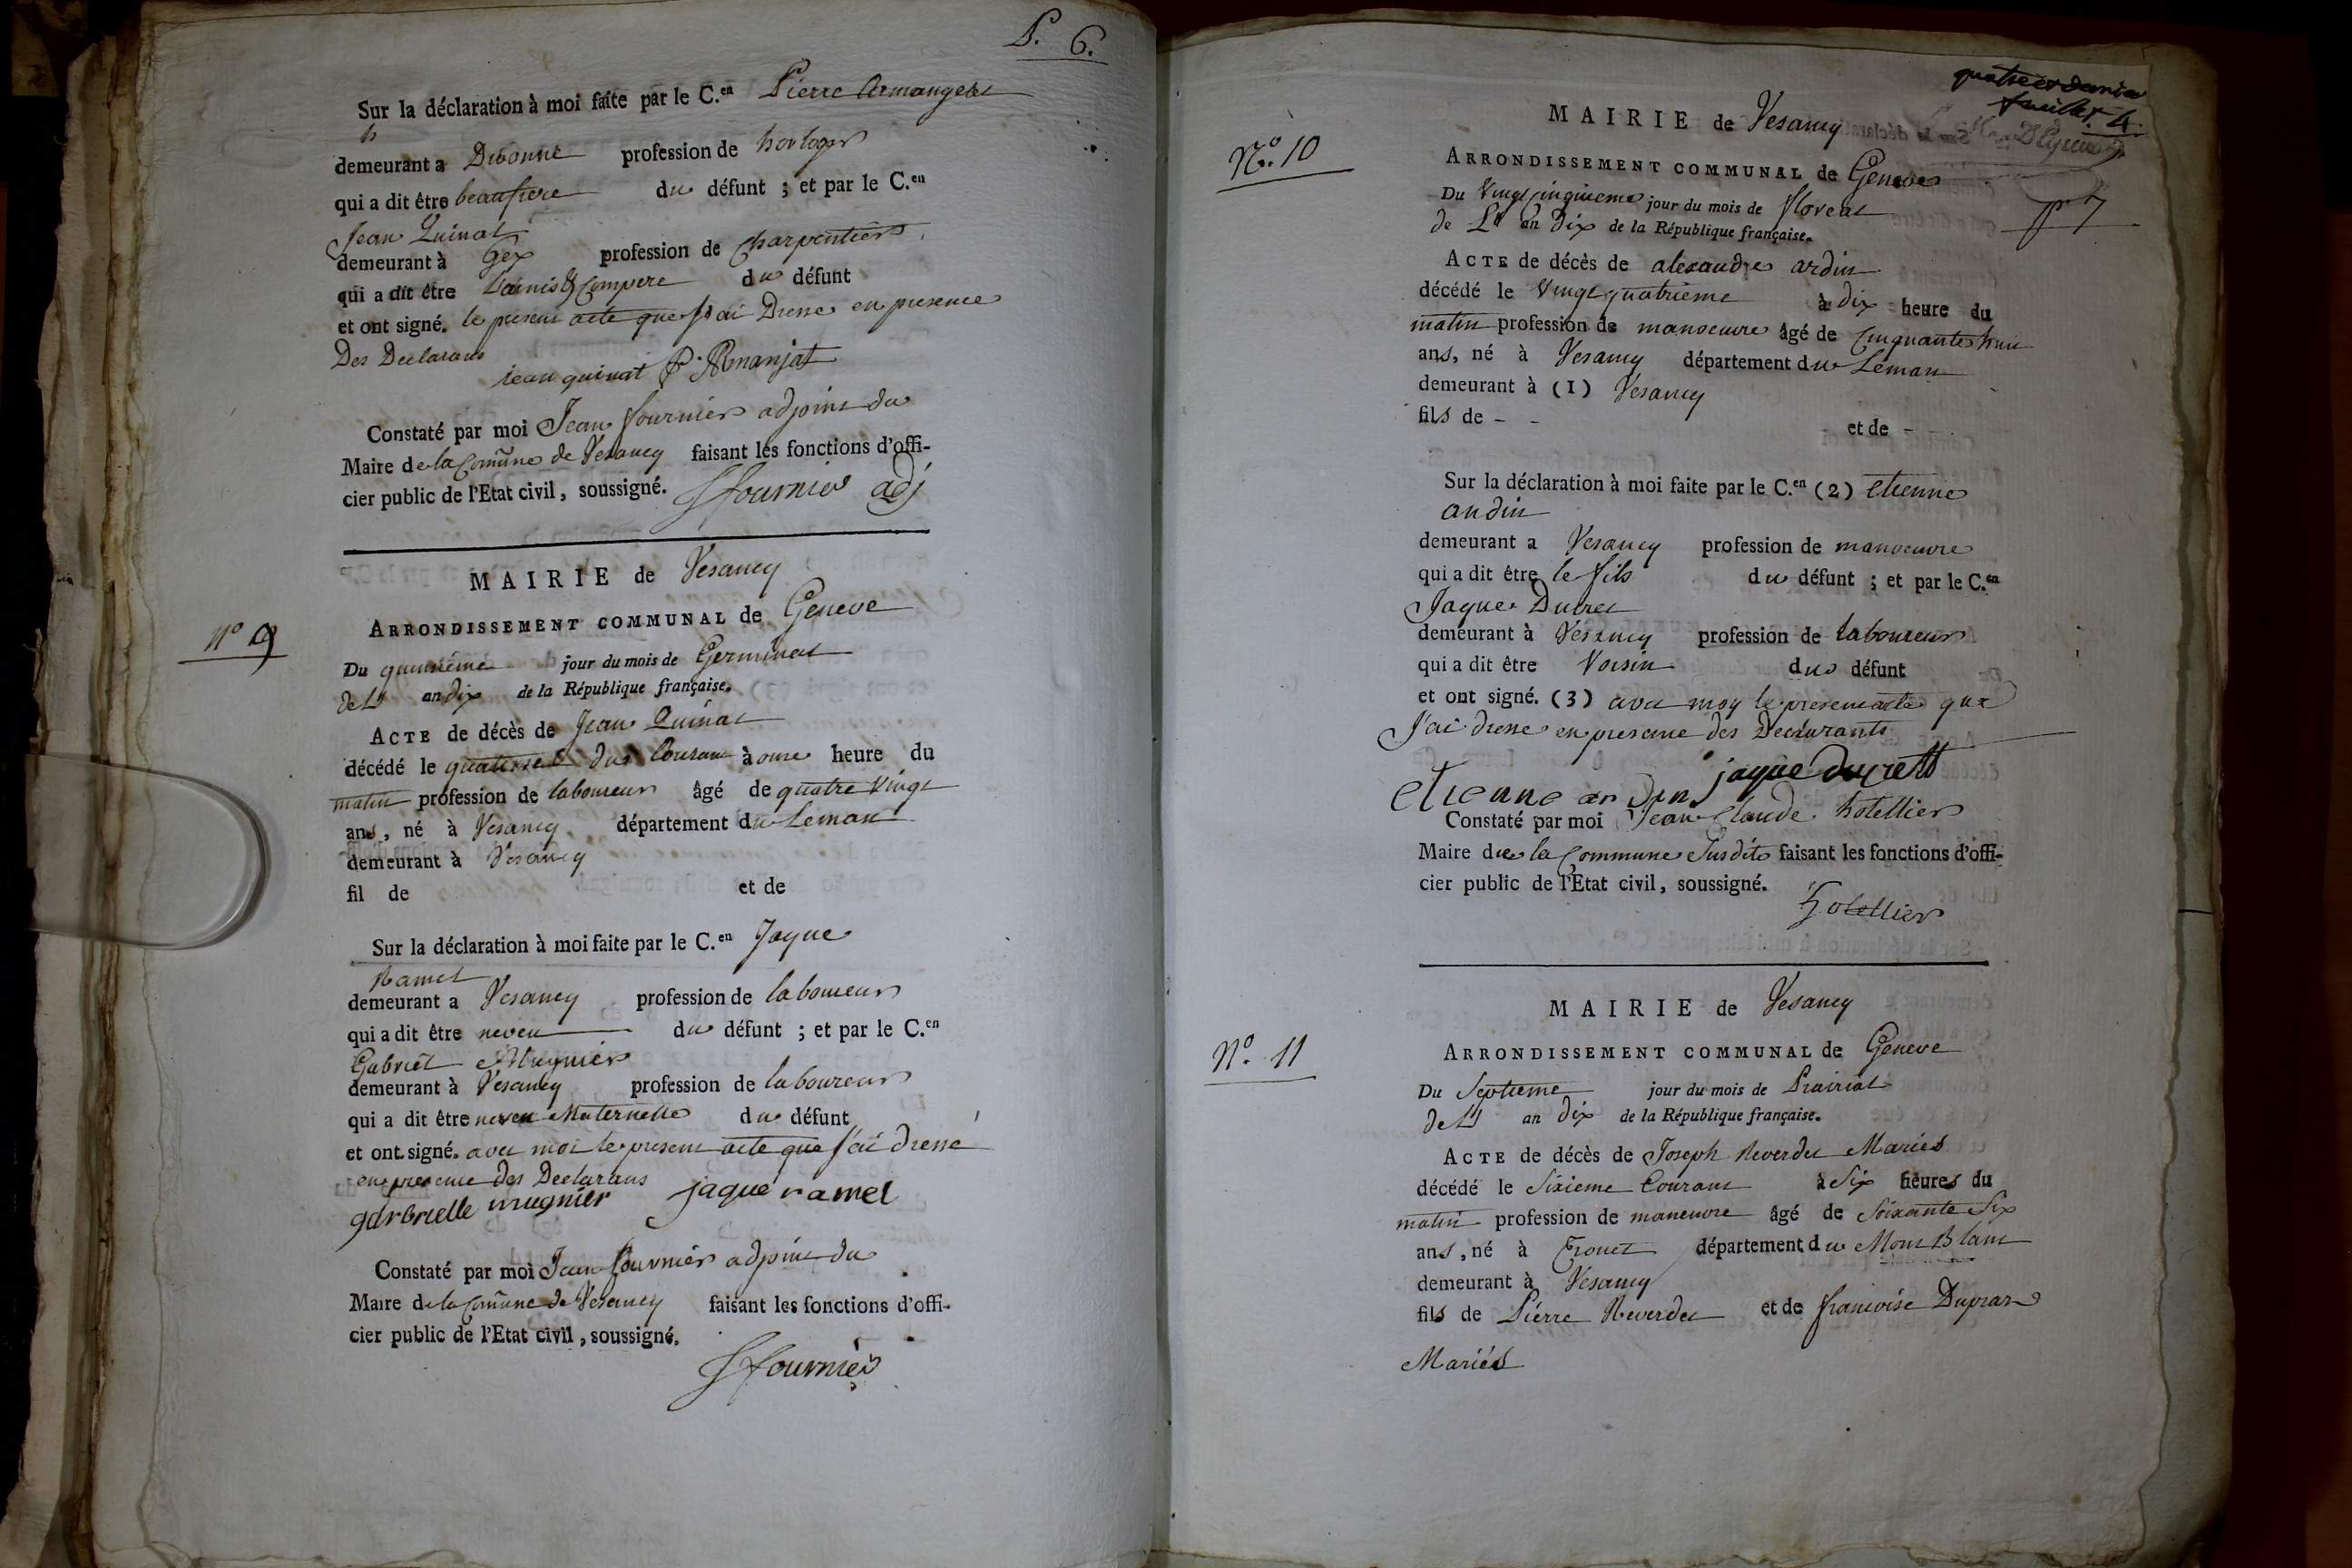 P. 6.
Sur la déclaration à moi faite par le C.en Pierre Armangeat
demeurant a Divonne profession de horloger
qui a dit être beaufrere du défunt ; et par le C.en
Jean Quinat
demeurant à Gex profession de Charpentier
qui a dit être Compere du défunt
et ont signé. le present acte que J'ai Dressé en presence
Des Declarans
jean quinat P. Armanjat
Constaté par moi Jean fournier adjoint du
Maire de la Comune de Vesancy faisant les fonctions d'offi-
cier public de l'Etat civil, soussigné. Jfournier adj
N° 9
MAIRIE de Vesancy
ARRONDISSEMENT COMMUNAL de Geneve
Du quinzième jour du mois de Germinal
de L' an dix de la République française.
ACTE de décès de Jean Quinat
décédé le quatorze du Courant à onze heure du
matin profession de laboureur âgé de quatre Vingt
ans, né à Vesancy département du Leman
demeurant à Vesancy
fil de et de
Sur la déclaration à moi faite par le C.en Jaque
Ramel
demeurant a Vesancy profession de laboureur
qui a dit être neveu du défunt ; et par le C.en
Gabriel Mugnier
demeurant à Vesancy profession de laboureur
qui a dit être neveu Maternelle du défunt
et ont signé. avec moi le present acte que J'ai dressé
en presence des Declarans
garbrielle mugnier jaque ramel
Constaté par moi Jean fournier adjoint du
Maire de la Comune de Vesancy faisant les fonctions d'offi-
cier public de l'Etat civil, soussigné.
Jfournier
quatre et dernier
feuillet. 4.
p 7
N.° 10
MAIRIE de Vesancy
ARRONDISSEMENT COMMUNAL de Geneve
Du Vingt cinquieme jour du mois de floreal
de L' an Dix de la République française.
ACTE de décès de alexandre ardin
décédé le Vingt quatrieme à dix heure du
matin profession de manoeuvre âgé de Cinquante huit
ans, né à Vesancy département du Leman
demeurant à (1) Vesancy
fils de - - et de -
Sur la déclaration à moi faite par le C.en (2) etienne
ardin
demeurant a Vesancy profession de manoeuvre
qui a dit être le fils du défunt ; et par le C.en
Jaque Ducret
demeurant à Vesancy profession de laboureur
qui a dit être Voisin du défunt
et ont signé. (3) avec moy le present acte que
J'ai dressé en presence des Declarants
etienne ardin jaque ducrett
Constaté par moi Jean Claude hotellier
Maire de la Commune Susdite faisant les fonctions d'offi-
cier public de l'Etat civil, soussigné.
hotellier
N.° 11
MAIRIE de Vesancy
ARRONDISSEMENT COMMUNAL de Geneve
Du Septieme jour du mois de Prairial
de L' an dix de la République française.
ACTE de décès de Joseph Reverdet Mariés
décédé le Sixieme Courant à Six heures du
matin profession de maneuvre âgé de Soixante Six
ans, né à département du Mont Blanc
demeurant à Vesancy
fils de Pierre Reverdet et de francoise Duprax
Mariés